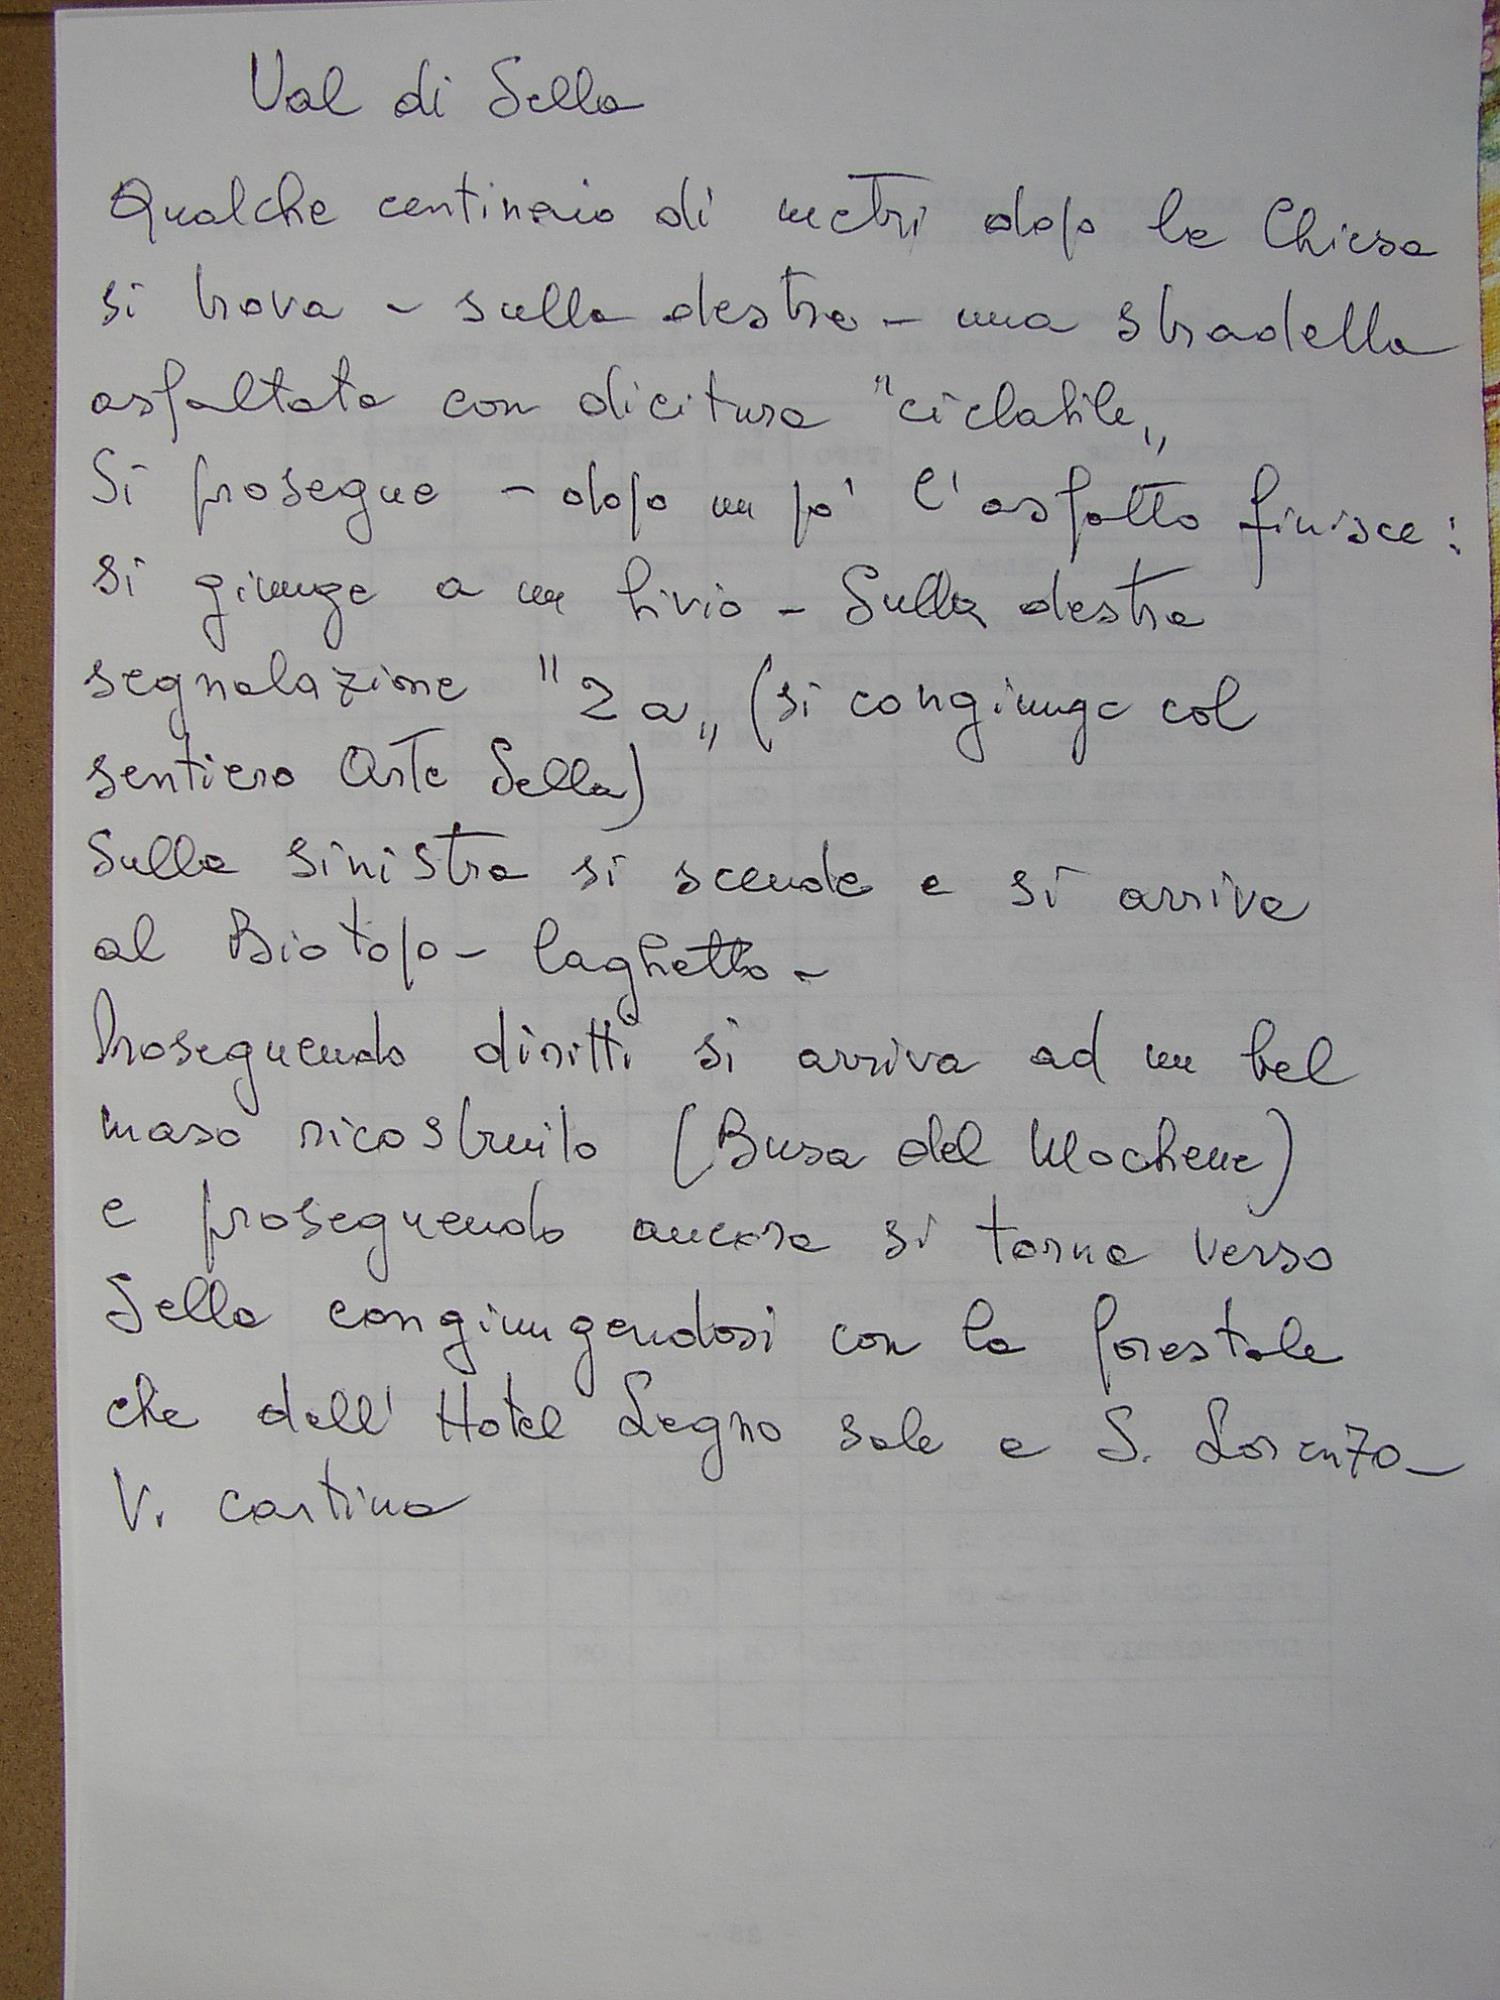 Val di Sella
Qualche centinaio di metri dopo la Chiesa
si trova - sulla destra - una stradella
asfaltata con dicitura "ciclabile„
Si prosegue - dopo un po' l'asfalto finisce:
si giunge a un bivio - Sulla destra
segnalazione "2a„ (si congiunge col
sentiero Arte Sella)
Sulla sinistra si scende e si arriva
al Biotopo - laghetto -
Proseguendo diritti si arriva ad un bel
maso ricostruito (Busa del Mochene)
e proseguendo ancora si torna verso
Sella congiungendosi con la forestale
che dall' Hotel Legno sale a S. Lorenzo -
V. cartina